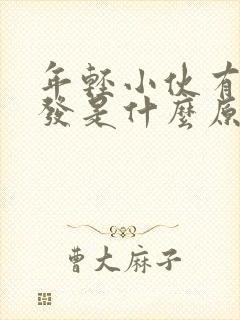 年輕小伙有
發是什麼原
曹大麻子